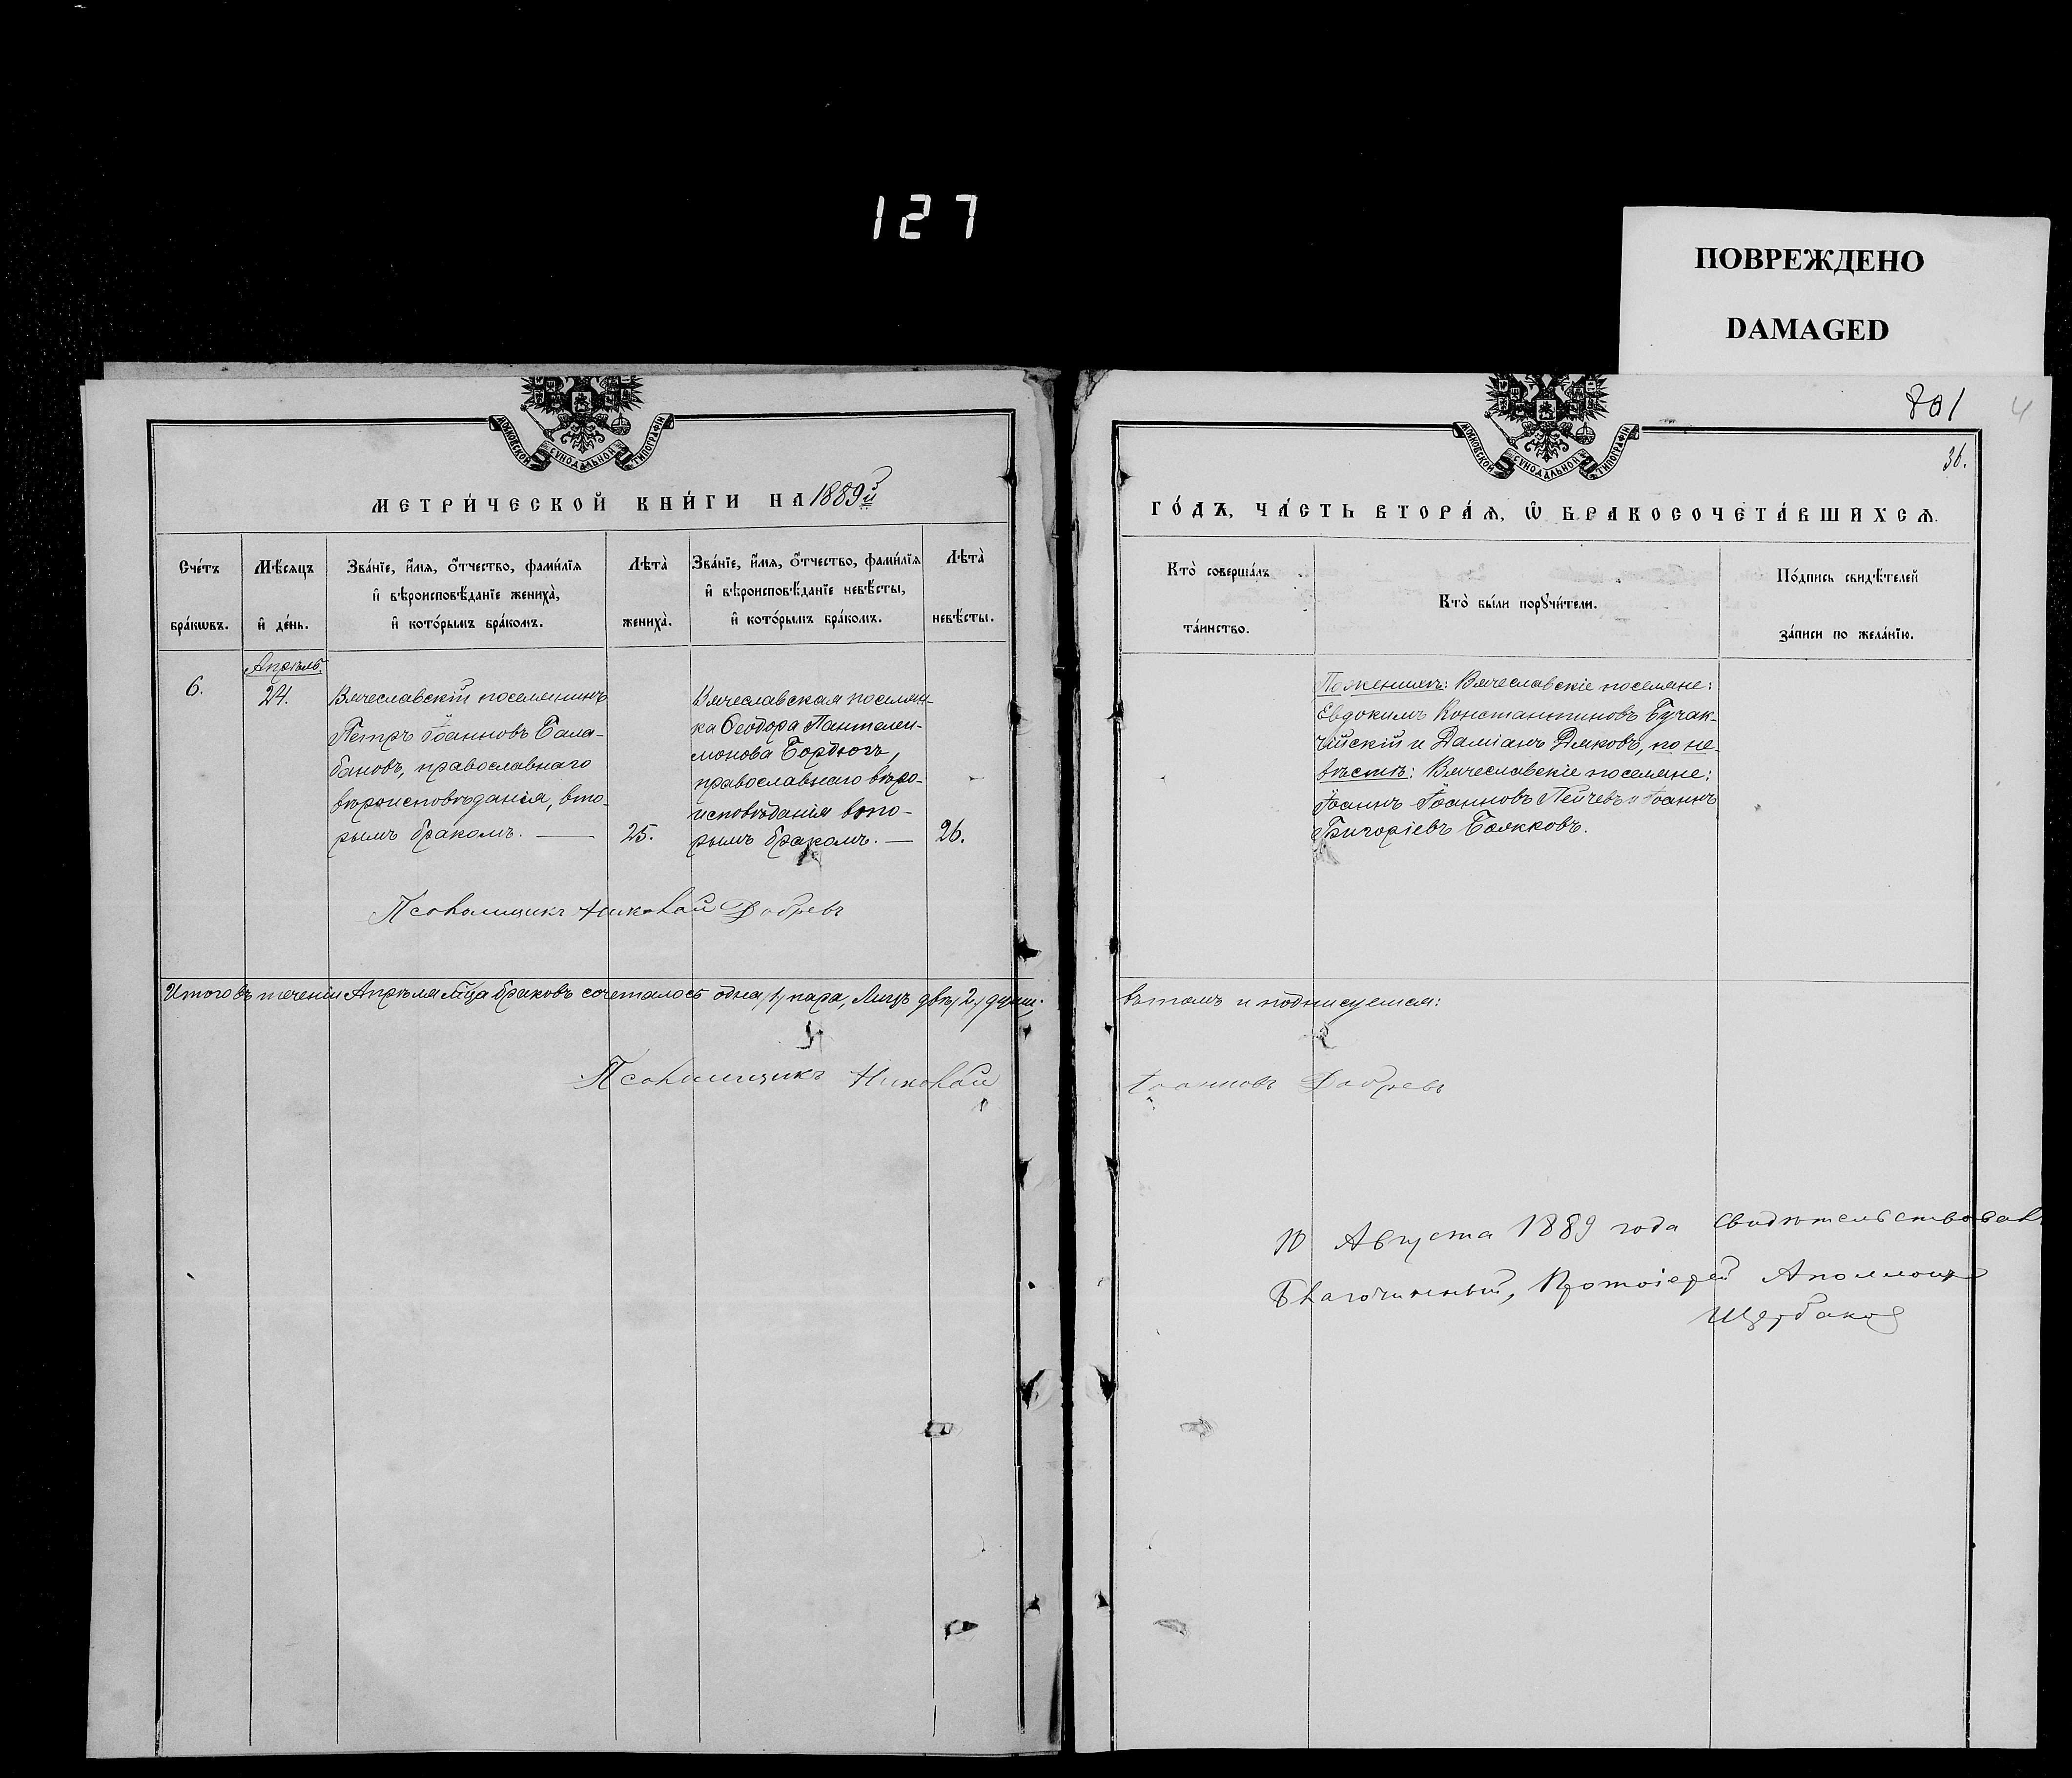 127
ПОВРЕЖДЕНО
DAMAGED
801
4
36.
МОСКОВСКОЙ СУНОДАЛЬНОЙ ТИПОГРАФІИ
МЕТРИ́ЧЕСКОЙ КНИ́ГИ НА 1889й
Сче́тъ бра́кѡвъ.
Мѣ́сяцъ и҆ де́нь.
Зва́нїе, и҆́мя, ѻ҆́тчество, фами́лїя
и҆ вѣроисповѣ́данїе жениха̀,
и҆ кото́рымъ бра́комъ.
Лѣта̀ жениха̀.
Зва́нїе, и҆́мя, ѻ҆́тчество, фами́лїя
и҆ вѣроисповѣ́данїе невѣ́сты,
и҆ кото́рымъ бра́комъ.
Лѣта̀ невѣ́сты.
6.
Апрѣль.
24.
Вячеславскій поселянинъ
Петръ Іоанновъ Бала-
бановъ, православнаго
вѣроисповѣданія, вто-
рымъ бракомъ. —
25.
Вячеславская поселян-
ка Ѳеодора Пантелеи-
монова Бордюгъ,
православнаго вѣро-
исповѣданія вто-
рымъ бракомъ. —
26.
Псаломщикъ Николай Добревъ
Итого въ теченіи Апрѣля м̃ца браковъ сочеталось одна /1/ пара, лицъ двѣ /2./ души.
Псаломщикъ Николай
МОСКОВСКОЙ СУНОДАЛЬНОЙ ТИПОГРАФІИ
ГО́ДЪ, ЧА́СТЬ ВТОРА́Я, Ѡ҆ БРАКОСОЧЕТА́ВШИХСЯ.
Кто̀ соверша́лъ
та́инство.
Кто̀ бы́ли порꙋчи́тели.
По́дпись свидѣ́телей
за́писи по жела́нїю.
По женихѣ: Вячеславскіе поселяне:
Евдокимъ Константиновъ Бучак-
чійскій и Даміанъ Дяковъ, по не-
вѣстѣ: Вячеславскіе поселяне:
Іоаннъ Іоанновъ Пейчевъ и Іоаннъ
Григоріевъ Бояковъ.
въ томъ и подписуемся:
Іоанновъ Добревъ
10 Августа 1889 года свидѣтельствовалъ
Благочинный, Протоіерей Аполлонъ
Щербаковъ